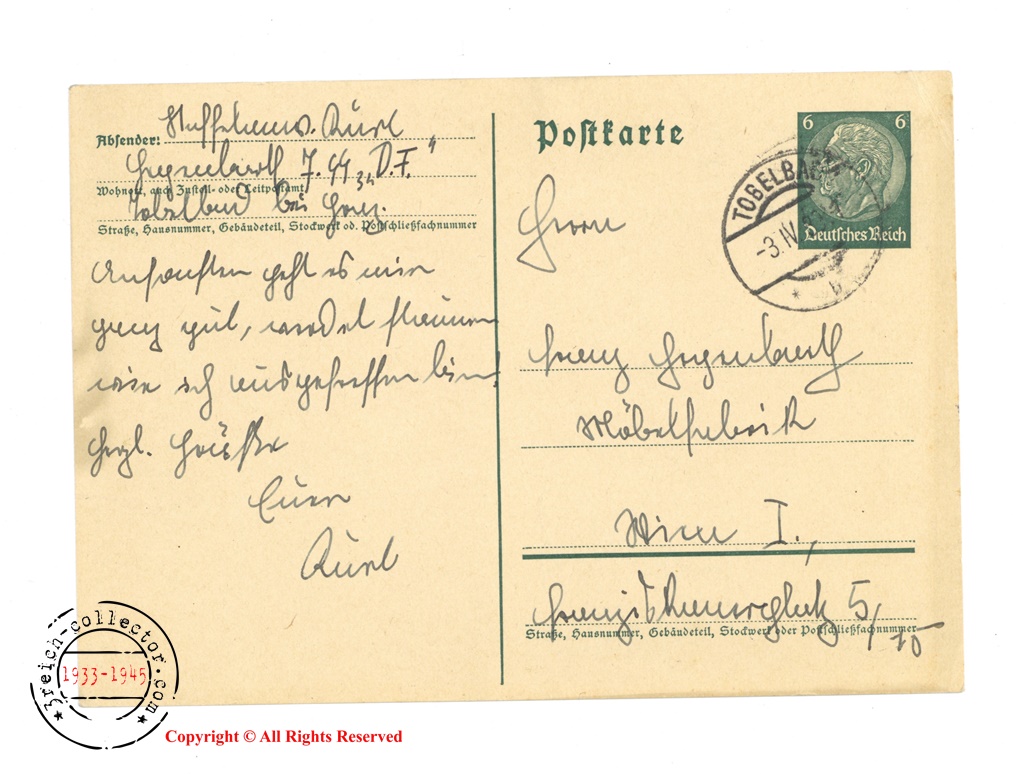 Absender: Staffelanw. Kurl
Hegenbarth 7. 44 "D.F."
Wohnort, auch Zustell- oder Leitpostamt
Tobelbad bei Graz.
Straße, Hausnummer, Gebäudeteil, Stockwerk od. Postschließfachnummer
Ansonsten geht es mir
ganz gut, werdet staunen
wie ich ausgefressen bin!
Herzl. Grüße
Euer
Kurl
Postkarte
6 6
Deutsches Reich
TOBELBAD
-3.IV
* b
Herrn
Franz Hegenbarth
Möbelfabrik
Wien I.,
Franziskanerplatz 5/
10
Straße, Hausnummer, Gebäudeteil, Stockwerk oder Postschließfachnummer
3reich-collector.com
1933-1945
Copyright © All Rights Reserved